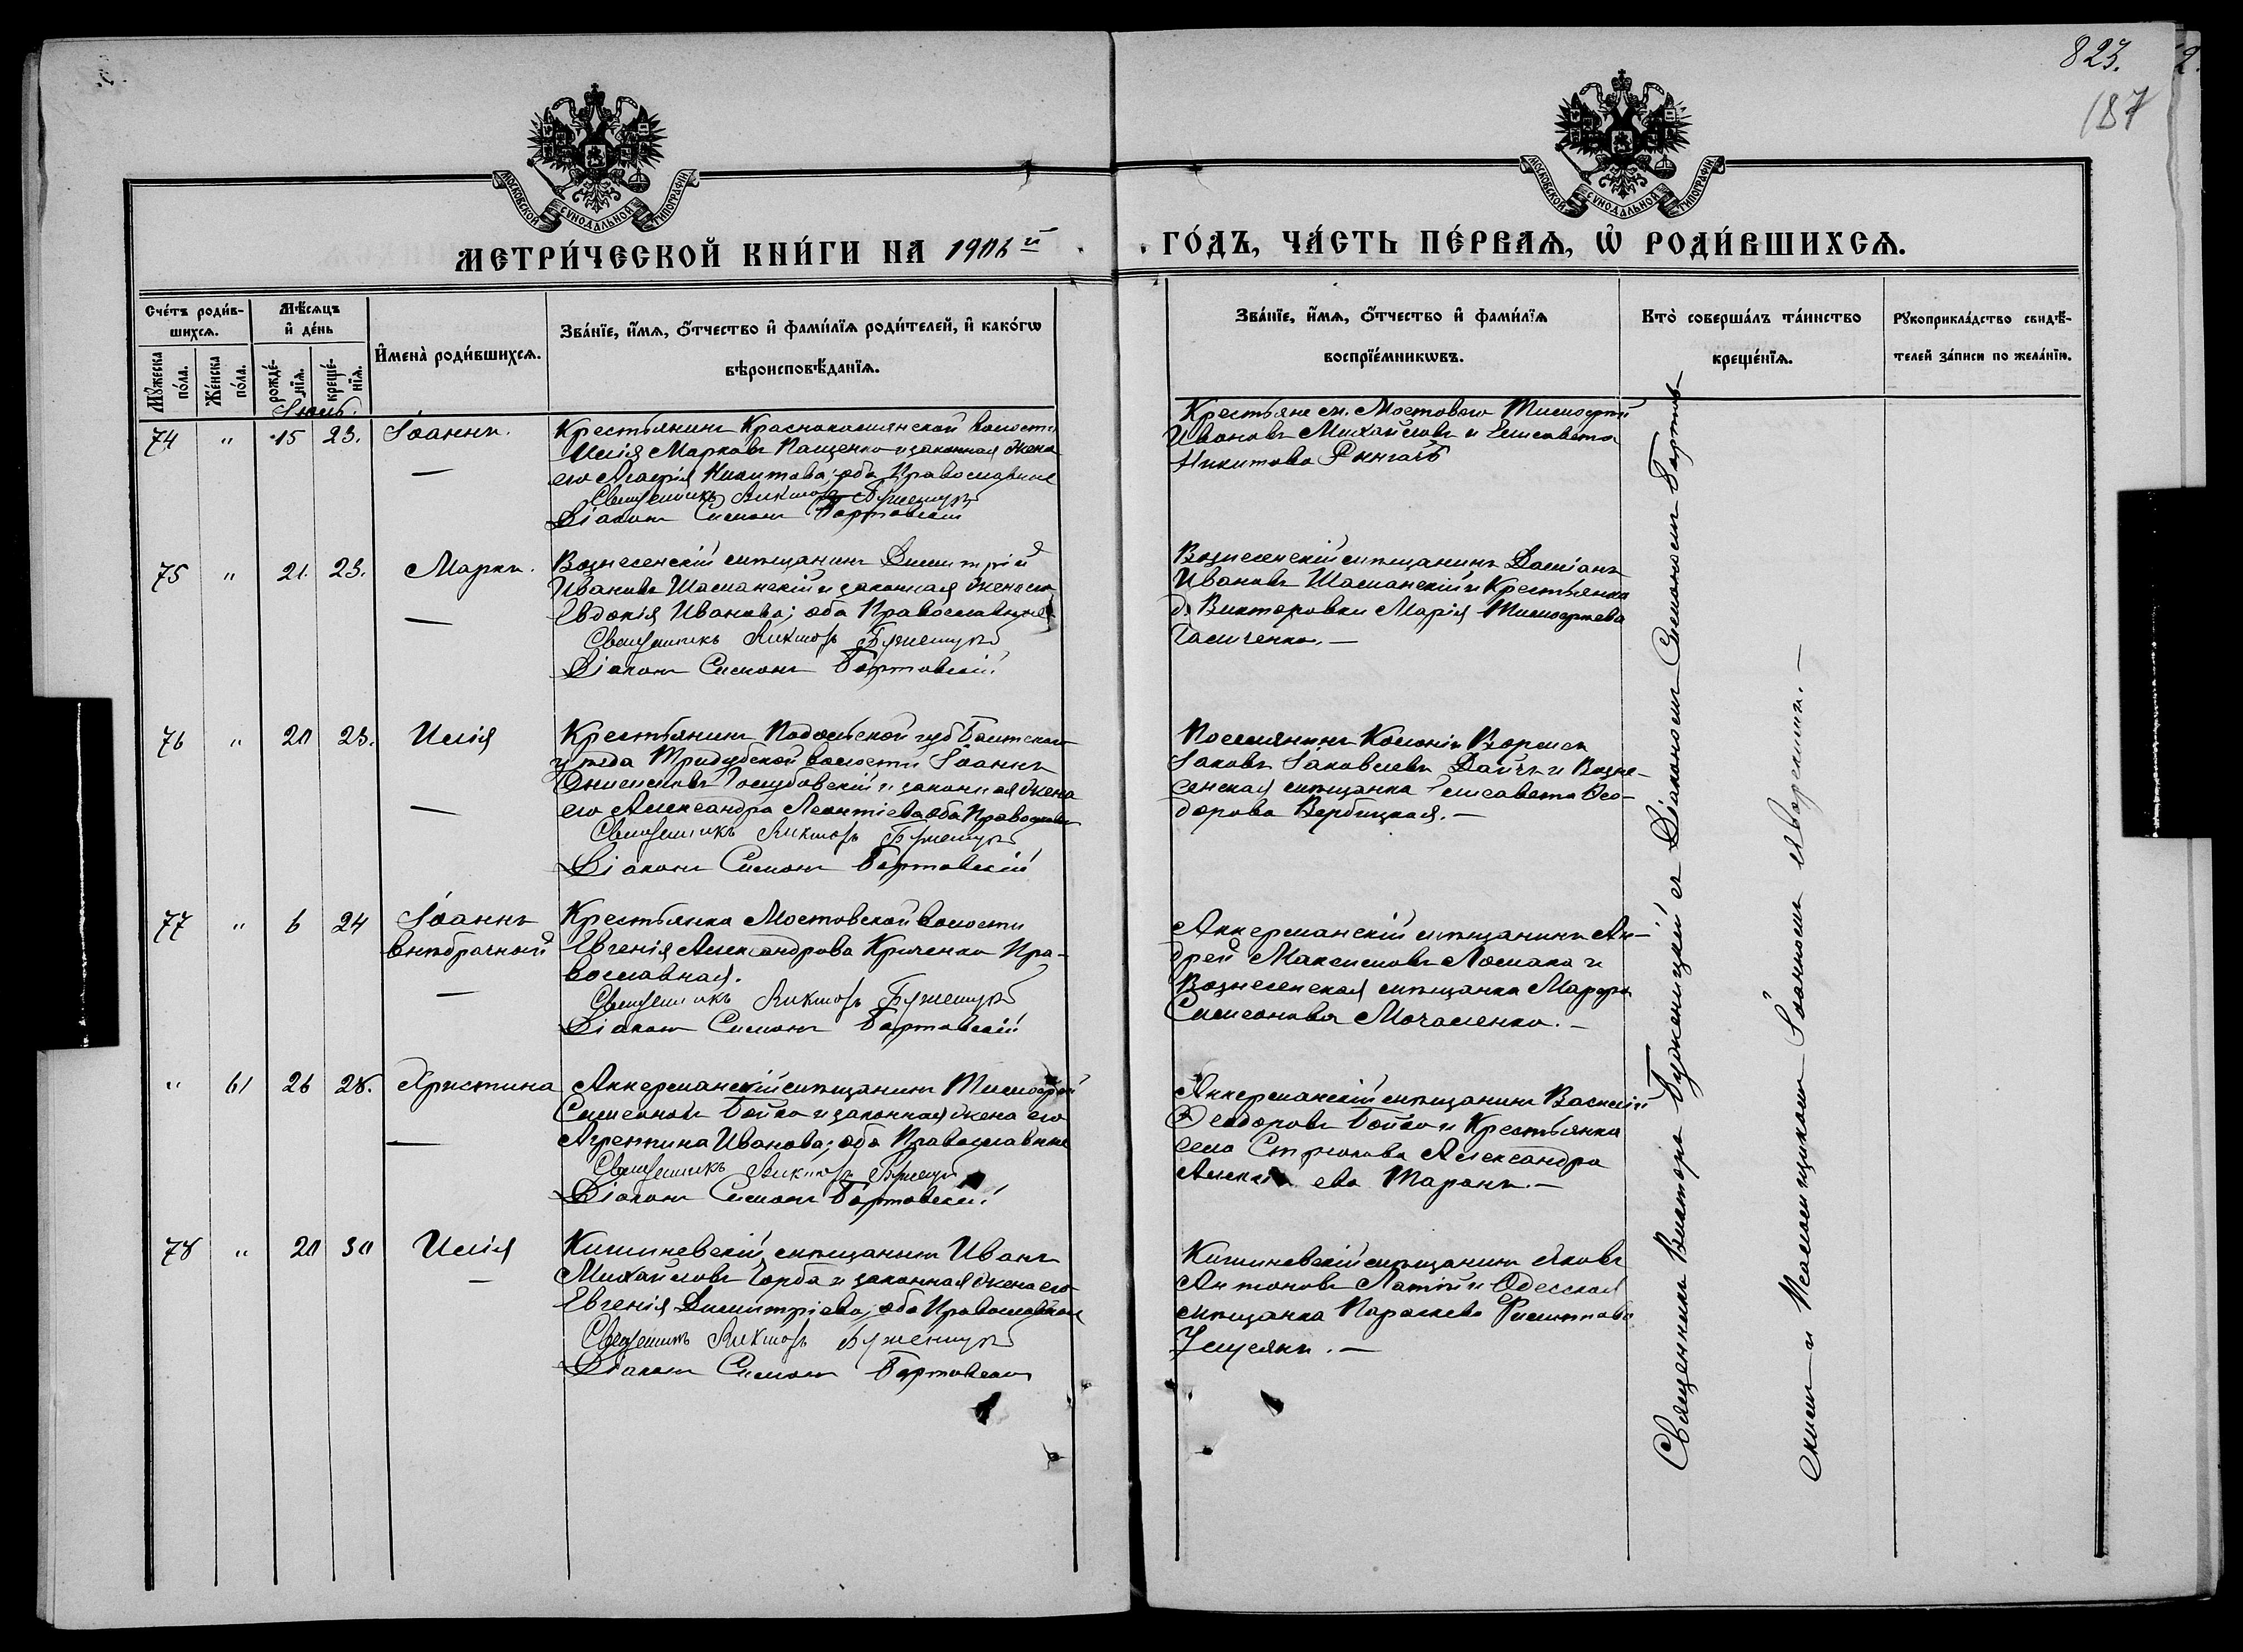 823.
187
МОСКОВСКОЙ СѴНОДАЛЬНОЙ ТИПОГРАФІИ
МОСКОВСКОЙ СѴНОДАЛЬНОЙ ТИПОГРАФІИ
МЕТРИ́ЧЕСКОЙ КНИ́ГИ НА 1906й ГО́ДЪ, ЧА́СТЬ ПЕ́РВАѦ, Ѡ҆ РОДИ́ВШИХСѦ.
Сче́тъ роди́в-
шихсѧ.
Мꙋ́жеска по́ла.
Же́нска по́ла.
Мѣ́сѧцъ
и҆ де́нь
рожде́-
нїѧ.
креще́-
нїѧ.
И҆мена̀ роди́вшихсѧ.
Зва́нїе, и҆́мѧ, ѻ҆́тчество и҆ фами́лїѧ роди́телей, и҆ како́гѡ
вѣроисповѣ́данїѧ.
Зва́нїе, и҆́мѧ, ѻ҆́тчество и҆ фами́лїѧ
воспрїе́мникѡвъ.
Кто̀ соверша́лъ та́инство
креще́нїѧ.
Рꙋкоприкла́дство свидѣ́-
телей за́писи по жела́нїю.
Іюль.
74 " 15 23. Іоаннъ.
Крестьянинъ Краснопольянской волости
Илія Марковъ Пащенко и законная жена
его Агафія Никитова; оба Православные
Священникъ Викторъ Буженицкій
Діаконъ Симонъ Бортовскій
Крестьяне м. Мостового Тимофей
Ивановъ Михайловъ и Елисавета
Никитова
75 " 21. 23. Маркъ.
Вознесенскій мѣщанинъ Димитрій
Ивановъ Шаманскій и законная жена его
Евдокія Иванова; оба Православные
Священникъ Викторъ Буженицкій
Діаконъ Симонъ Бортовскій
Вознесенскій мѣщанинъ Даміанъ
Ивановъ Шаманскій и Крестьянка
д. Викторовки Марія Тимофеева
76 " 20 23. Илія
Крестьянинъ Подольской губ Балтскаго
уѣзда Тридубской волости Іоаннъ
Голубовскій и законная жена
его Александра Леонтіева оба Православн
Священникъ Викторъ Буженицкій
Діаконъ Симонъ Бортовскій
Поселянинъ Колоніи Вормсъ
Іаковъ Іаковлевъ Дайчъ и Возне-
сенская мѣщанка Елисавета Ѳео-
дорова Вербицкая. —
77 " 6 24 Іоаннъ
внѣбрачный
Крестьянка Мостовской волости
Евгенія Александрова Криченко Пра-
вославная.
Священникъ Викторъ Буженицкій
Діаконъ Симонъ Бортовскій
Аккерманскій мѣщанинъ Ан-
дрей Максимовъ Ломака и
Вознесенская мѣщанка Марфа
Симеонова Мочаленко. —
" 61 26 28. Христина
Аккерманскій мѣщанинъ Тимофей
Симеоновъ Бойко и законная жена его
Агрепина Иванова; оба Православные
Священникъ Викторъ Бужениц
Діаконъ Симонъ Бортовскій
Аккерманскій мѣщанинъ Василій
Ѳеодоровъ Бойко и Крестьянка
села Стрюкова Александра
ева Таранъ. —
78 " 20 30 Илія
Кишиневскій мѣщанинъ Иванъ
Михайловъ Горба и законная жена его
Евгенія Димитріева; оба Православные
Священникъ Викторъ Буженицкій
Діаконъ Симонъ Бортовскій
Кишиневскій мѣщанинъ Яковъ
Антоновъ Латій и Одесская
мѣщанка Параскева Филиппова
Священникъ Викторъ Буженицкій съ Діакономъ Симономъ Бортов-
скимъ и Псаломщикомъ Іоанномъ Яворскимъ. —